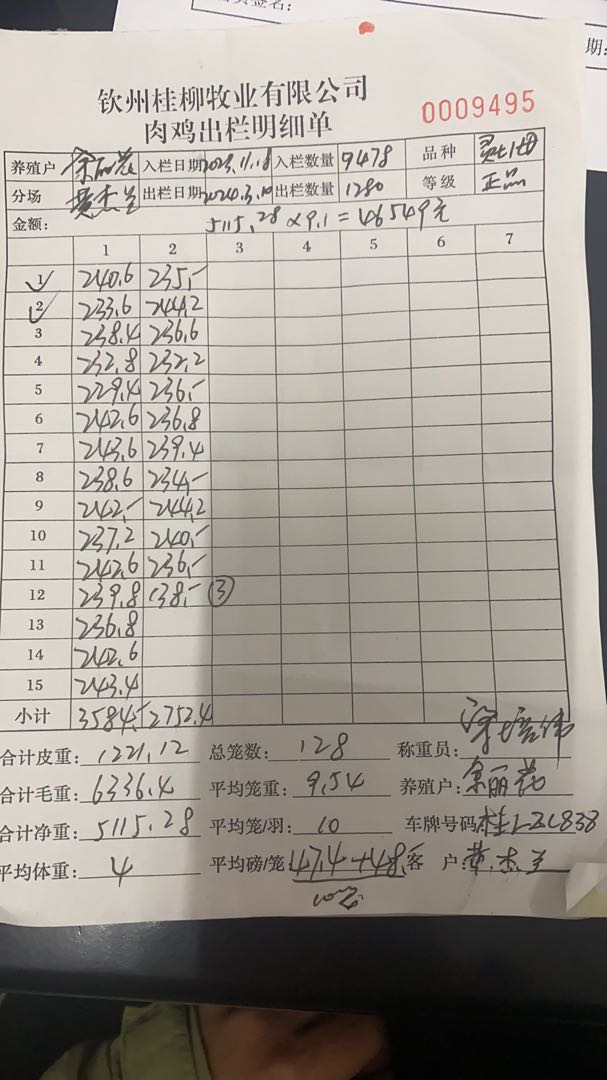 签名:
期:
钦州桂柳牧业有限公司
肉鸡出栏明细单
0009495
养殖户 余丽花 入栏日期 2023.11.18 入栏数量 9478 品种
分场 黄杰兰 出栏日期 2024.3.10 出栏数量 1280 等级 正品
金额: 5115.28×9.1=46549元
1 2 3 4 5 6 7
1 240.6 235,-
2 233.6 244.2
3 238.4 236.6
4 232.8 232.2
5 229.4 236,-
6 242.6 236.8
7 243.6 239.4
8 238.6 234,-
9 242,- 244.2
10 237.2 240,-
11 242.6 236,-
12 239.8 138,- ③
13 236.8
14 242.6
15 243.4
小计 3584,- 2752.4
合计皮重: 1221.12 总笼数: 128 称重员:
合计毛重: 6336.4 平均笼重: 9.54 养殖户: 余丽花
合计净重: 5115.28 平均笼/羽: 10 车牌号码
平均体重: 4 平均磅/笼: 47.4+48, 客户: 黄杰兰